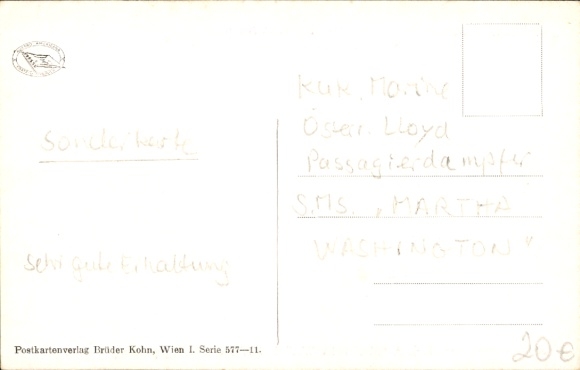 Sonderkarte
Sehr gute Erhaltung
Postkartenverlag Brüder Kohn, Wien I. Serie 577—11.
KuK. Marine
Öster. Lloyd
Passagierdampfer
S.M.S. „MARTHA
WASHINGTON"
20€